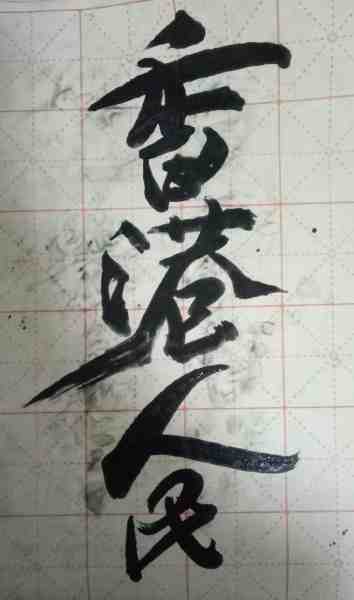 香港人民